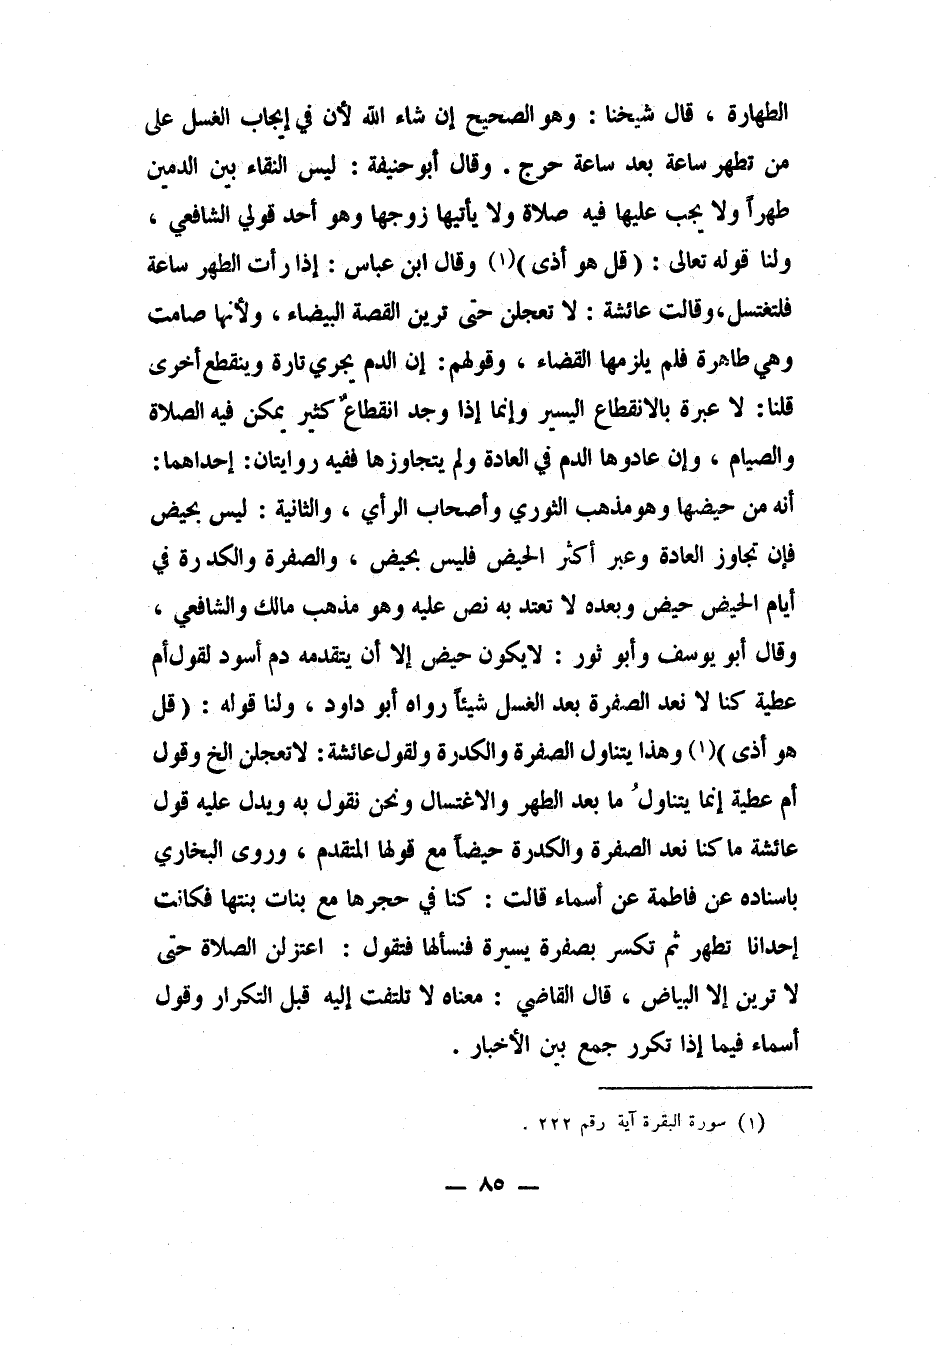 الطهارة ، قال شيخنا : وهو الصحيح إن شاء الله لأن في إيجاب الغسل على
من تطهر ساعة بعد ساعة حرج . وقال أبو حنيفة : ليس النقاء بين الدمين
طهراً ولا يجب عليها فيه صلاة ولا يأتيها زوجها وهو أحد قولي الشافعي ،
ولنا قوله تعالى : ( قل هو أذى )(١) وقال ابن عباس : إذا رأت الطهر ساعة
فلتغتسل، وقالت عائشة : لا تعجلن حتى ترين القصة البيضاء ، ولأنها صامت
وهي طاهرة فلم يلزمها القضاء ، وقولهم : إن الدم يجري تارة وينقطع أخرى
قلنا : لا عبرة بالانقطاع اليسير وإنما إذا وجد انقطاعٌ كثير يمكن فيه الصلاة
والصيام ، وإن عادوها الدم في العادة ولم يتجاوزها ففيه روايتان : إحداهما :
أنه من حيضها وهو مذهب الثوري وأصحاب الرأي ، والثانية : ليس بحيض
فإن تجاوز العادة وعبر أكثر الحيض فليس بحيض ، والصفرة والكدرة في
أيام الحيض حيض وبعده لا تعتد به نص عليه وهو مذهب مالك والشافعي ،
وقال أبو يوسف وأبو ثور : لا يكون حيض إلا أن يتقدمه دم أسود لقول أم
عطية كنا لا نعد الصفرة بعد الغسل شيئاً رواه أبو داود ، ولنا قوله : ( قل
هو أذى )(١) وهذا يتناول الصفرة والكدرة ولقول عائشة : لا تعجلن الخ وقول
أم عطية إنما يتناولُ ما بعد الطهر والاغتسال ونحن نقول به ويدل عليه قول
عائشة ما كنا نعد الصفرة والكدرة حيضاً مع قولها المتقدم ، وروى البخاري
باسناده عن فاطمة عن أسماء قالت : كنا في حجرها مع بنات بنتها فكانت
إحدانا تطهر ثم تكسر بصفرة يسيرة فنسألها فتقول : اعتزلن الصلاة حتى
لا ترين إلا البياض ، قال القاضي : معناه لا تلتفت إليه قبل التكرار وقول
أسماء فيما إذا تكرر جمع بين الأخبار .
(١) سورة البقرة آية رقم ٢٢٢ .
— ٨٥ —